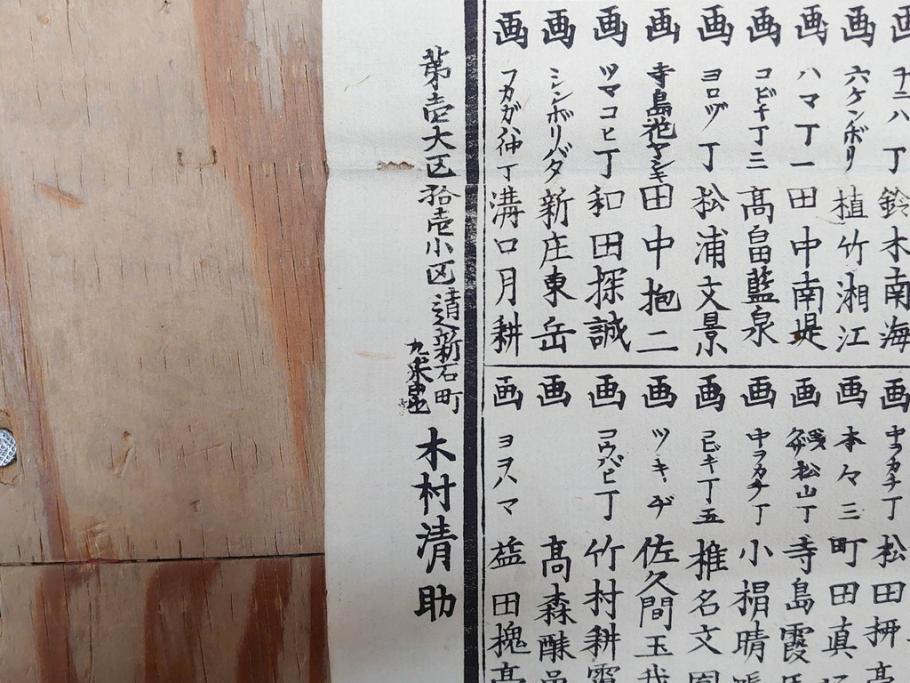 画 ナニハ丁 鈴木南海
画 六ケンボリ 植竹湘江
画 ハマ丁一 田中南堤
画 コビキ丁三 高畠藍泉
画 ヨロヅ丁 松浦文景
画 寺島花ヤシキ 田中抱二
画 ツマコヒ丁 和田探誠
画 シンボリバタ 新庄東岳
画 フカガハ仲丁 溝口月耕
画 ナカハチ丁 松田
画 本々三 町田真
画 松山丁 寺島霞
画 丁 小梠晴
画 コビキ丁五 椎名文
画 ツキヂ 佐久間玉
画 コウバヒ丁 竹村耕
画 高森
画 ヨコハマ 益田槐
第壱大区拾壱小区
新石町
木村清助